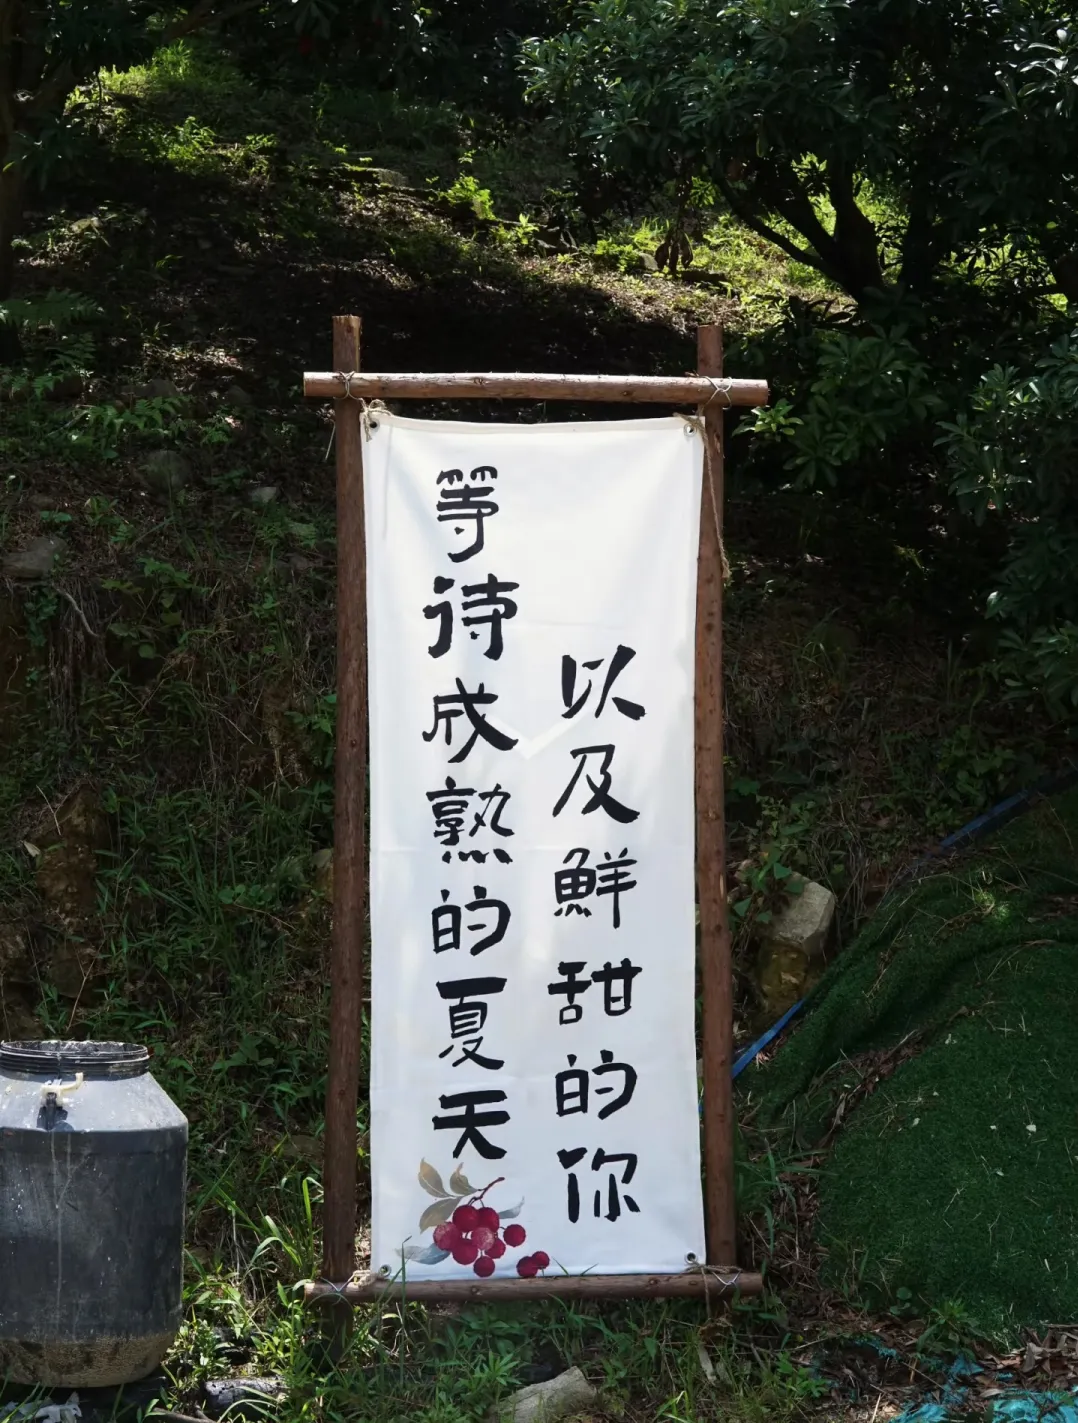 等待成熟的夏天
以及鮮甜的你